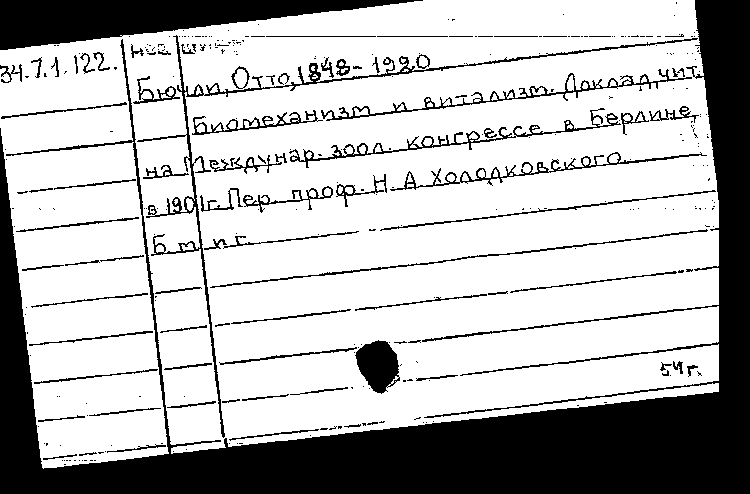 34.7.1.122.
Бючли, Отто, 1848-1920
Биомеханизм и витализм. Доклад, чит.
на Междунар. зоол. конгрессе в Берлине
в 1901г. Пер. проф. Н. А Холодковского
Б. м. и г.
54г.